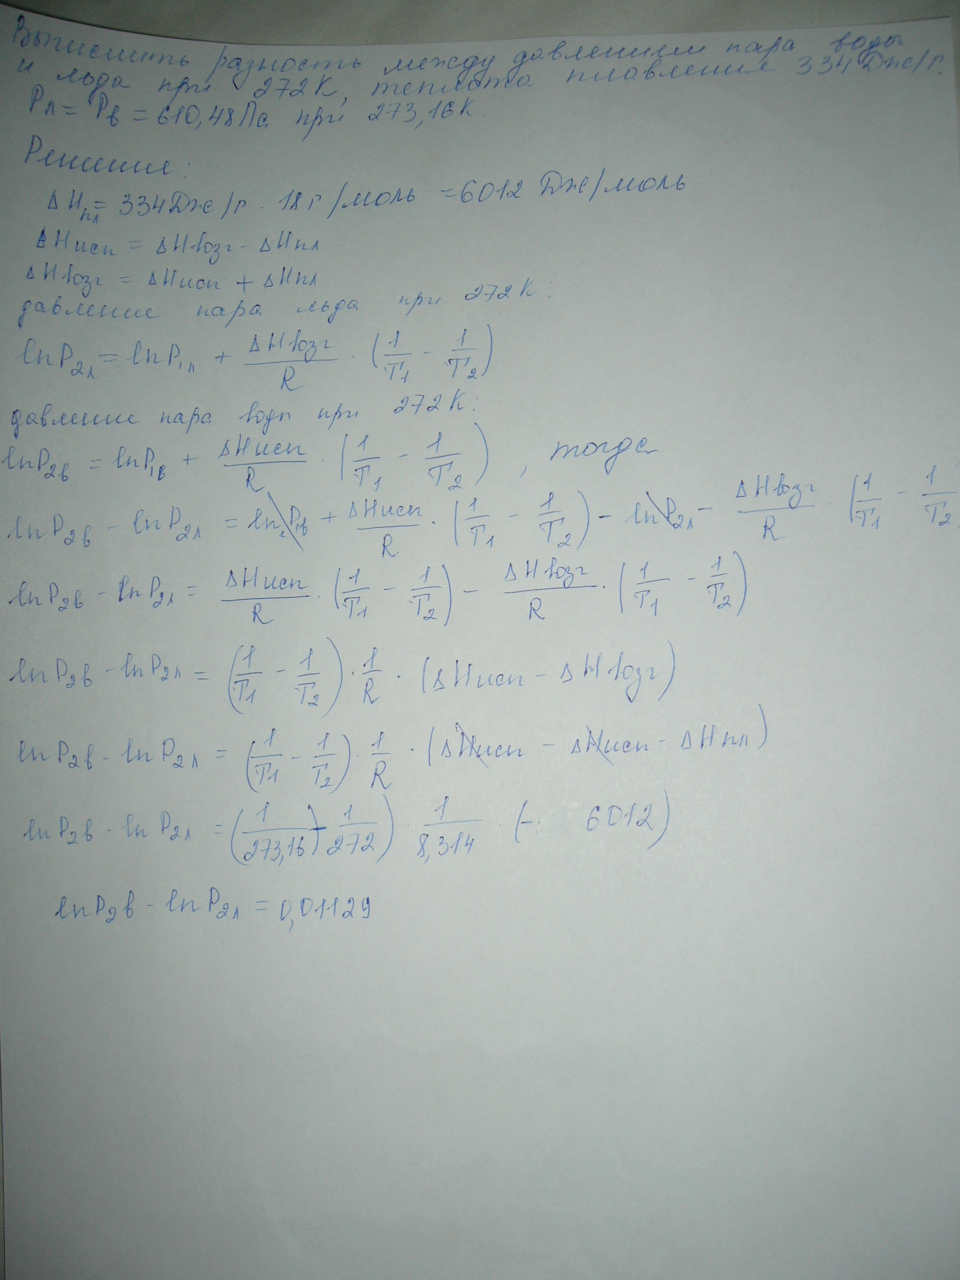 Вычислить разность между давлением пара воды
и льда при 272К, теплота плавления 334 Дж/г.
Pл = Pв = 610,48Па при 273,16К.
Решение:
ΔHпл = 334Дж/г · 18г/моль = 6012 Дж/моль
ΔHисп = ΔHвозг - ΔHпл
ΔHвозг = ΔHисп + ΔHпл
давление пара льда при 272К:
lnP2л = lnP1л + ΔHвозг/R · (1/T1 - 1/T2)
давление пара воды при 272К:
lnP2в = lnP1в + ΔHисп/R · (1/T1 - 1/T2), тогда
lnP2в - lnP2л = lnP1в + ΔHисп/R · (1/T1 - 1/T2) - lnP2л - ΔHвозг/R · (1/T1 - 1/T2
lnP2в - lnP2л = ΔHисп/R · (1/T1 - 1/T2) - ΔHвозг/R · (1/T1 - 1/T2)
lnP2в - lnP2л = (1/T1 - 1/T2) · 1/R · (ΔHисп - ΔHвозг)
lnP2в - lnP2л = (1/T1 - 1/T2) · 1/R · (ΔHисп - ΔHисп - ΔHпл)
lnP2в - lnP2л = (1/273,16 - 1/272) · 1/8,314 · (- 6012)
lnP2в - lnP2л = 0,01129